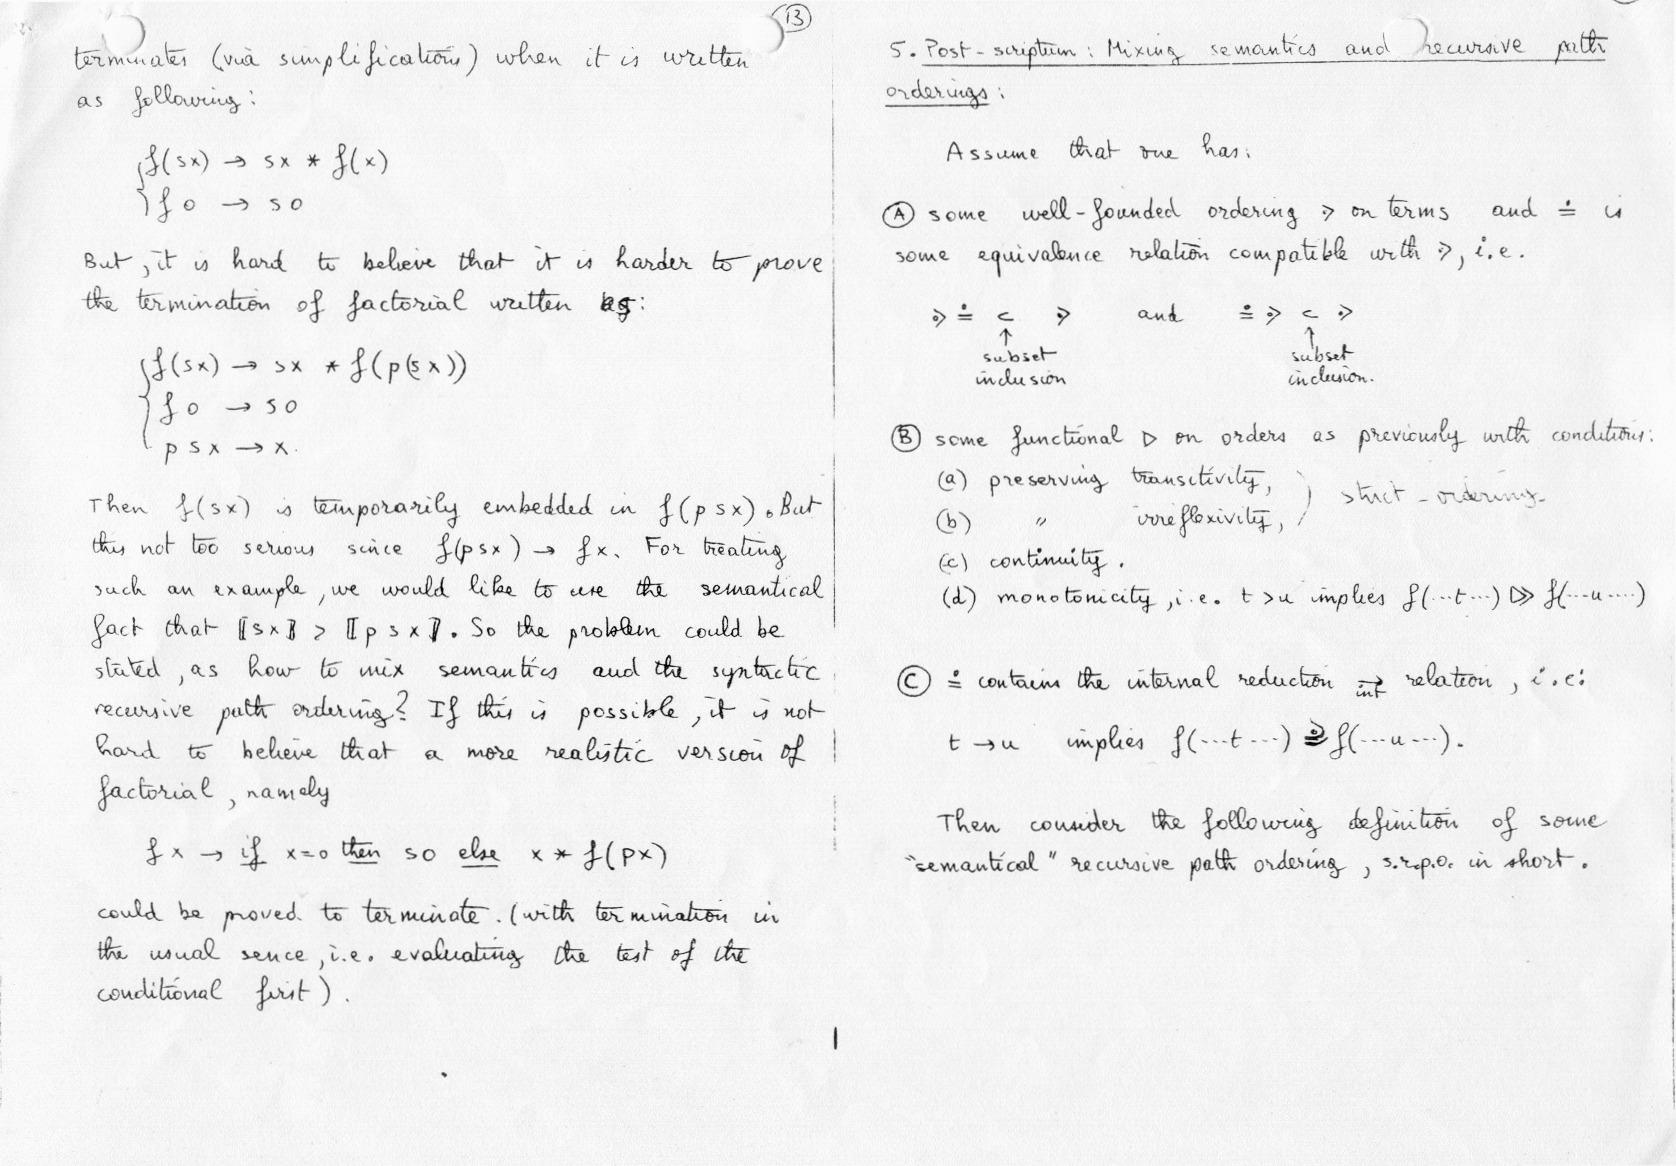 13
terminates (via simplifications) when it is written
as following:
f(sx) → sx * f(x)
f o → so
But, it is hard to believe that it is harder to prove
the termination of factorial written as:
f(sx) → sx * f(p(sx))
f o → so
p s x → x.
Then f(sx) is temporarily embedded in f(p sx). But
this not too serious since f(psx) → fx. For treating
such an example, we would like to use the semantical
fact that ⟦sx⟧ > ⟦p s x⟧. So the problem could be
stated, as how to mix semantics and the syntactic
recursive path ordering? If this is possible, it is not
hard to believe that a more realistic version of
factorial, namely
f x → if x=o then so else x * f(px)
could be proved to terminate. (with termination in
the usual sence, i.e. evaluating the test of the
conditional first).
5. Post-scriptum: Mixing semantics and recursive path
orderings:
Assume that one has:
Ⓐ some well-founded ordering ⋗ on terms and ≐ is
some equivalence relation compatible with ⋗, i.e.
⋗ ≐ ⊂ ⋗ and ≐ ⋗ ⊂ ⋗
↑ ↑
subset subset
inclusion inclusion.
Ⓑ some functional ▷ on orders as previously with conditions:
(a) preserving transitivity, ) strict-ordering
(b) " irreflexivity, )
(c) continuity.
(d) monotonicity, i.e. t > u implies f(...t...) ▷> f(...u....)
Ⓒ ≐ contains the internal reduction →int relation, i.e:
t → u implies f(...t...) ≐ f(...u...).
Then consider the following definition of some
"semantical" recursive path ordering, s.r.p.o. in short.